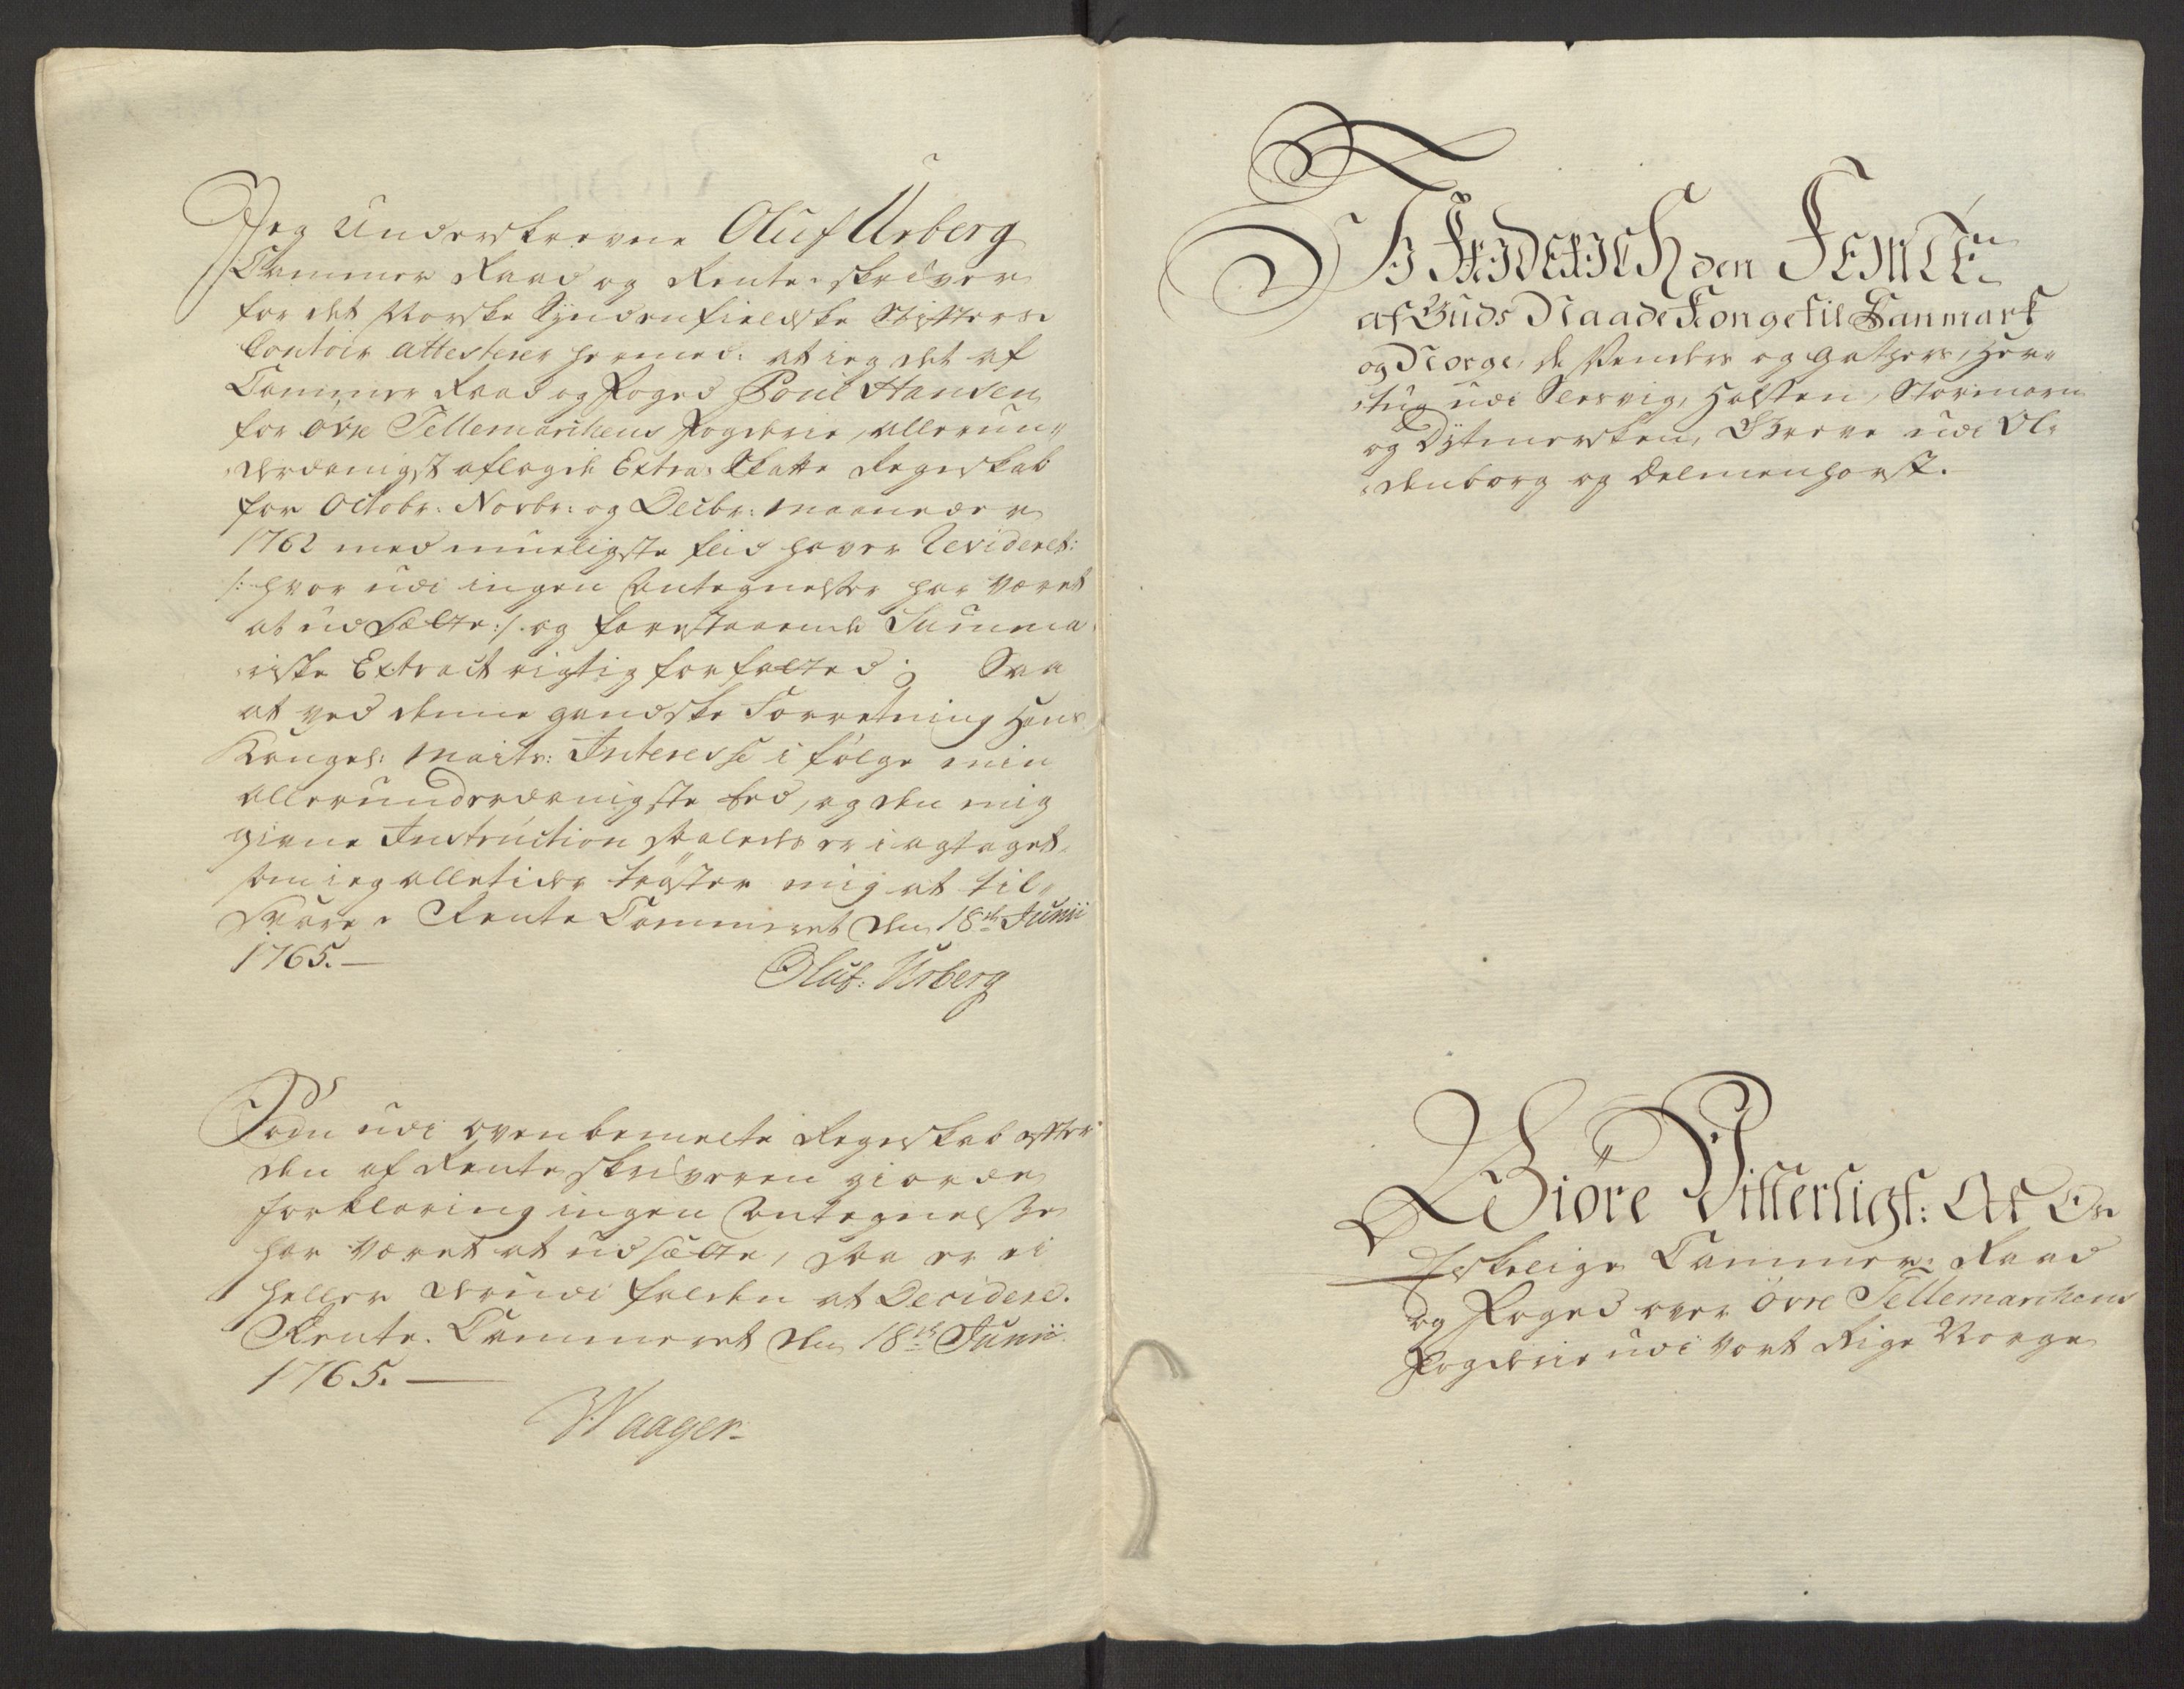 Jeg Underskrevne Oluf Urberg
Cammer Raad og Rente-skriver
for det Norske Syndenfieldske Stifters
Contoir attesterer hermed: at ieg det af
Cammer Raad og Foged Povel Hansen
for Øvre Tellemarchens Fogderie, allerun-
derdanigst aflagde Extra-Skatte Regnskab
for Octobr: Novbr: og Decbr: Maaneder
1762 med mueligste fliid haver Revideret:
/: hvor udi ingen Antegnelser har været
at udsætte :/ og forestaaende Summa-
riske Extract rigtig forfattet; Saa
at ved denne gandske Forretning Hans
Kongel: Mayts: Interesse i følge min
allerunderdanigste Eed, og den mig
givne Instruction saaledes er iagtaget,
som ieg alletider trøster mig at til-
svare. Rente Cammeret den 18de Junii
1765.—
Oluf: Urberg
Som udi ovenbemelte Regnskab efter
den af Renteskriveren giorde
forklaring ingen Antegnelser
har været at udsætte, saa er ei
heller derudi falden at Decidere.
Rente-Cammeret den 18de Junii
1765.—
Waager
Vi Friderich den Femte
af Guds Naade Konge til Danmark
og Norge, de Venders og Gothers, Her-
tug udi Slesvig, Holsten, Stormarn
og Dytmersken, Greve udi Ol-
denborg og Delmenhorst.
Giöre Vitterligt: At Os
Elskelige Cammer-Raad
og Foged over Øvre Tellemarchens
Fogderie udi vort Rige Norge